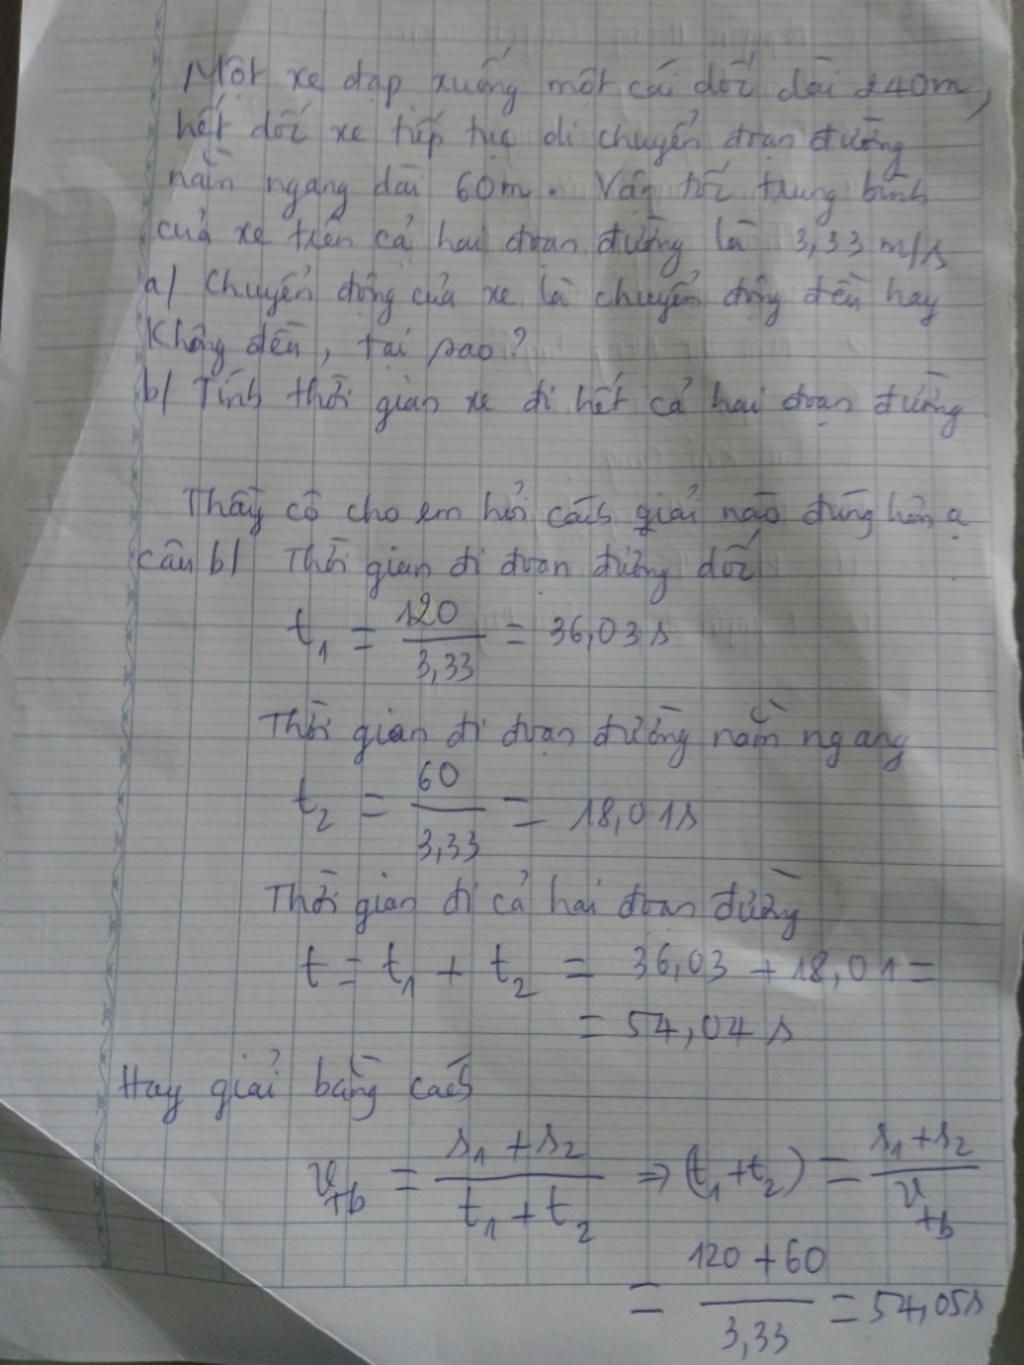 Một xe đạp xuống một cái dốc dài 240m,
hết dốc xe tiếp tục di chuyển đoạn đường
nằm ngang dài 60m. Vận tốc trung bình
của xe trên cả hai đoạn đường là 3,33 m/s
a/ Chuyển động của xe là chuyển động đều hay
Không đều, tại sao?
b/ Tính thời gian xe đi hết cả hai đoạn đường
Thầy cô cho em hỏi cách giải nào đúng hơn ạ
câu b/ Thời gian đi đoạn đường dốc
t₁ = 120/3,33 = 36,03 s
Thời gian đi đoạn đường nằm ngang
t₂ = 60/3,33 = 18,01s
Thời gian đi cả hai đoạn đường
t = t₁ + t₂ = 36,03 + 18,01 =
= 54,04 s
Hay giải bằng cách
v_tb = (s₁ + s₂)/(t₁ + t₂) ⇒ (t₁ + t₂) = (s₁ + s₂)/v_tb
= (120 + 60)/3,33 = 54,05s